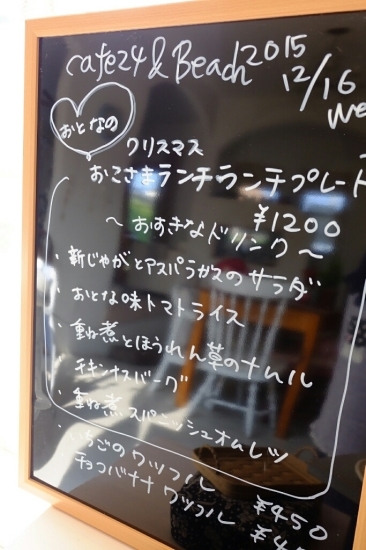 cafe24 & Beach 2015
12/16
We
おとなの
クリスマス
おこさまランチランチプレート
¥1200
～おすきなドリンク～
・新じゃがとアスパラガスのサラダ
・おとな味トマトライス
・重ね煮とほうれん草のナムル
・チキンナスバーグ
・重ね煮スパニッシュオムレツ
・いちごのワッフル ¥450
チョコバナナワッフル ¥4